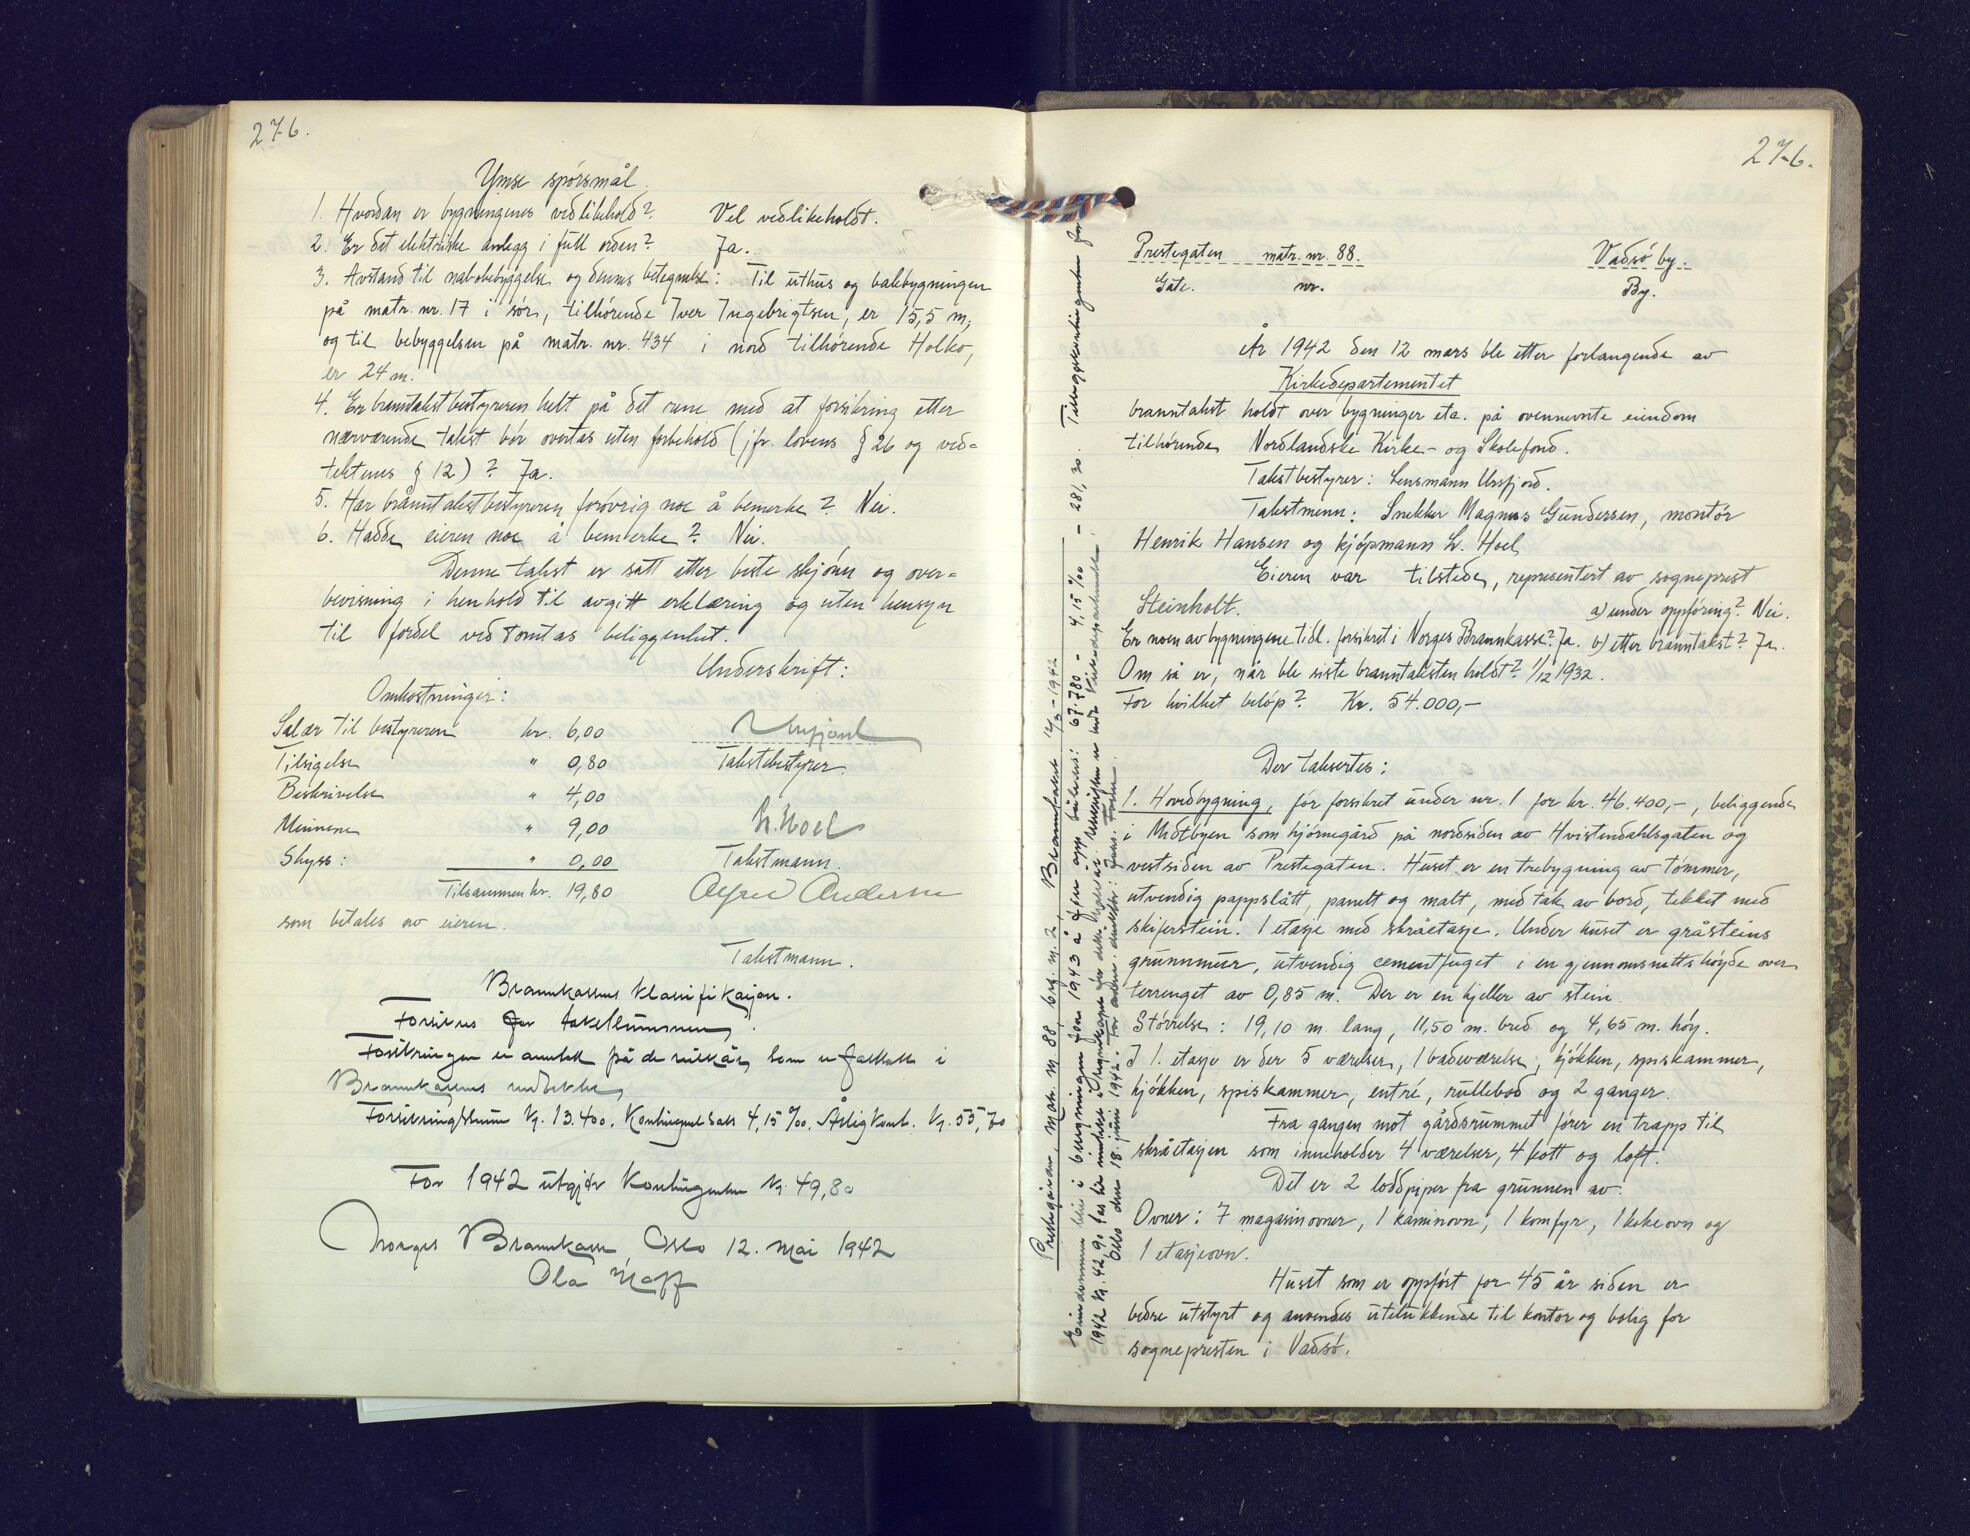 276.
Ymse spørsmål.
1. Hvordan er bygningenes vedlikehold? Vel vedlikeholdt.
2. Er det elektriske anlegg i full orden? Ja.
3. Avstand til nabobebyggelse og dennes betegnelse: Til uthus og bakbygningen
på matr. nr. 17 i sør, tilhørende Iver Ingebrigtsen, er 15,5 m,
og til bebyggelsen på matr. nr. 434 i nord tilhørende Holko,
er 24 m.
4. Er branntakstbestyreren helt på det rene med at forsikring etter
nærværende takst bør overtas uten forbehold (jfr. lovens § 26 og ved=
tektenes § 12)? Ja.
5. Har branntakstbestyreren forøvrig noe å bemerke? Nei.
6. Hadde eieren noe å bemerke? Nei.
Denne takst er satt etter beste skjønn og over=
bevisning i henhold til avgitt erklæring og uten hensyn
til fordel ved tomtas beliggenhet.
Underskrift:
Omkostninger:
Salær til bestyreren kr. 6,00
Tilsigelse " 0,80 Takstbestyrer.
Beskrivelse " 4,00
Mennene " 9,00 L. Hoel
Skyss: " 0,00 Takstmann.
Tilsammen kr. 19,80 Alfred Andersen
som betales av eieren.
Takstmann.
Brannkassens klassifikasjon.
Forsikres for takstsummen.
Forsikringen er antatt på de vilkår, som er fastsatt i
Brannkassens vedtekter.
Forsikringssum kr. 13.400. Kontingentsats 4,15 ‰. Årlig kont. kr. 55,70
For 1942 utgjør kontingenten kr. 49,80
Norges Brannkasse, Oslo 12. mai 1942
Ola
276.
Prestegaten matr. nr. 88. Vadsø by.
Gate. nr. By.
År 1942 den 12 mars ble etter forlangende av
Kirkedepartementet
branntakst holdt over bygninger eta. på ovennevnte eiendom
tilhørende Nordlandske Kirke- og Skolefond.
Takstbestyrer: Lensmann Ursfjord.
Takstmenn: Snekker Magnus Gundersen, montør
Henrik Hansen og kjøpmann L. Hoel
Eieren var tilstede, representert av sogneprest
Steinholt. a) under oppføring? Nei.
Er noen av bygningene tidl. forsikret i Norges Brannkasse? Ja. b) etter branntakst? Ja.
Om så er, når ble siste branntaksten holdt? 1/12 1932.
For hvilket beløp? Kr. 54.000,-
Der taksertes:
1. Hovedbygning, før forsikret under nr. 1 for kr. 46.400,-, beliggende
i Midtbyen som hjørnegård på nordsiden av Hvistendahlsgaten og
vestsiden av Prestegaten. Huset er en trebygning av tømmer,
utvendig pappslått, panelt og malt, med tak av bord, tekket med
skiferstein. 1 etasje med skråetasje. Under huset er gråsteins
grunnmur, utvendig cementfuget i en gjennomsnittshøyde over
terrenget av 0,85 m. Der er en kjeller av stein.
Størrelse: 19,10 m. lang, 11,50 m. bred og 4,65 m. høy.
I 1. etasje er der 5 værelser, 1 badeværelse, kjøkken, spiskammer,
kjøkken, spiskammer, entré, rullebod og 2 ganger.
Fra gangen mot gårdsrummet fører en trapp til
skråetasjen som inneholder 4 værelser, 4 kott og loft.
Det er 2 loddpiper fra grunnen av.
Ovner: 7 magasinovner, 1 kaminovn, 1 komfyr, 1 kokeovn og
1 etasjeovn.
Huset som er oppført for 45 år siden er
bedre utstyrt og anvendes utelukkende til kontor og bolig for
sognepresten i Vadsø.
Prestegården, Matr. nr. 88, brg. nr. 2, Branntakst 12/3-1942
Eiendommen blir i bygningen fra 1943 å føre opp således: 67.780 - 4,15 ‰ - 281,30. Tilleggskontingenten for
1942 kr. 42,90
Oslo den 18. juni 1942. For adm. direktør: